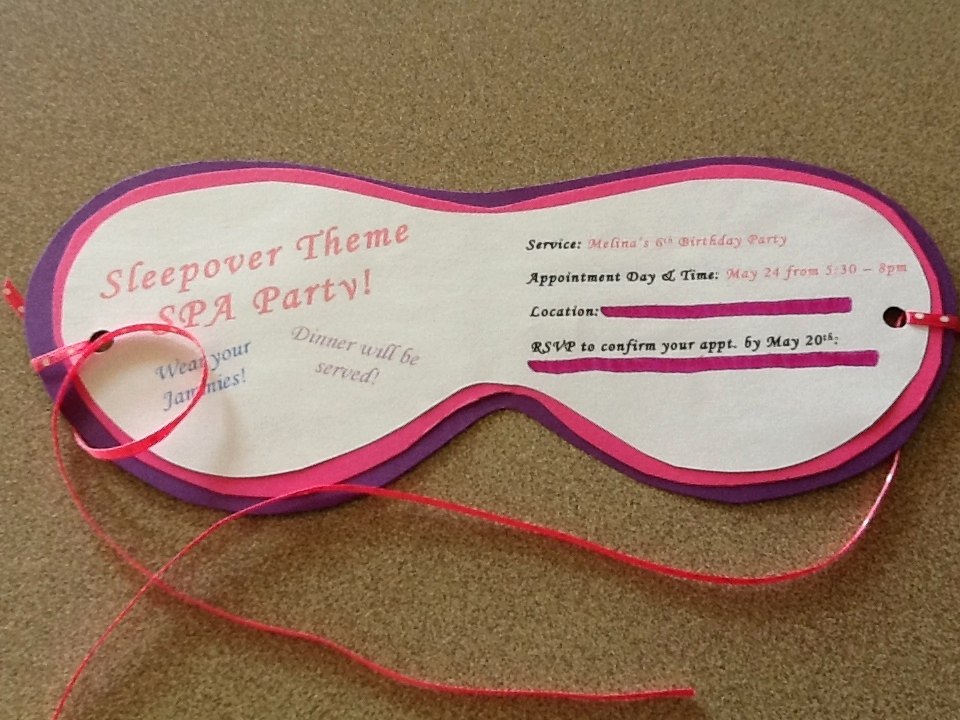 Sleepover Theme
SPA Party!
Wear your
Jammies!
Dinner will be
served!
Service: Melina's 6th Birthday Party
Appointment Day & Time: May 24 from 5:30 – 8pm
Location:
RSVP to confirm your appt. by May 20th: